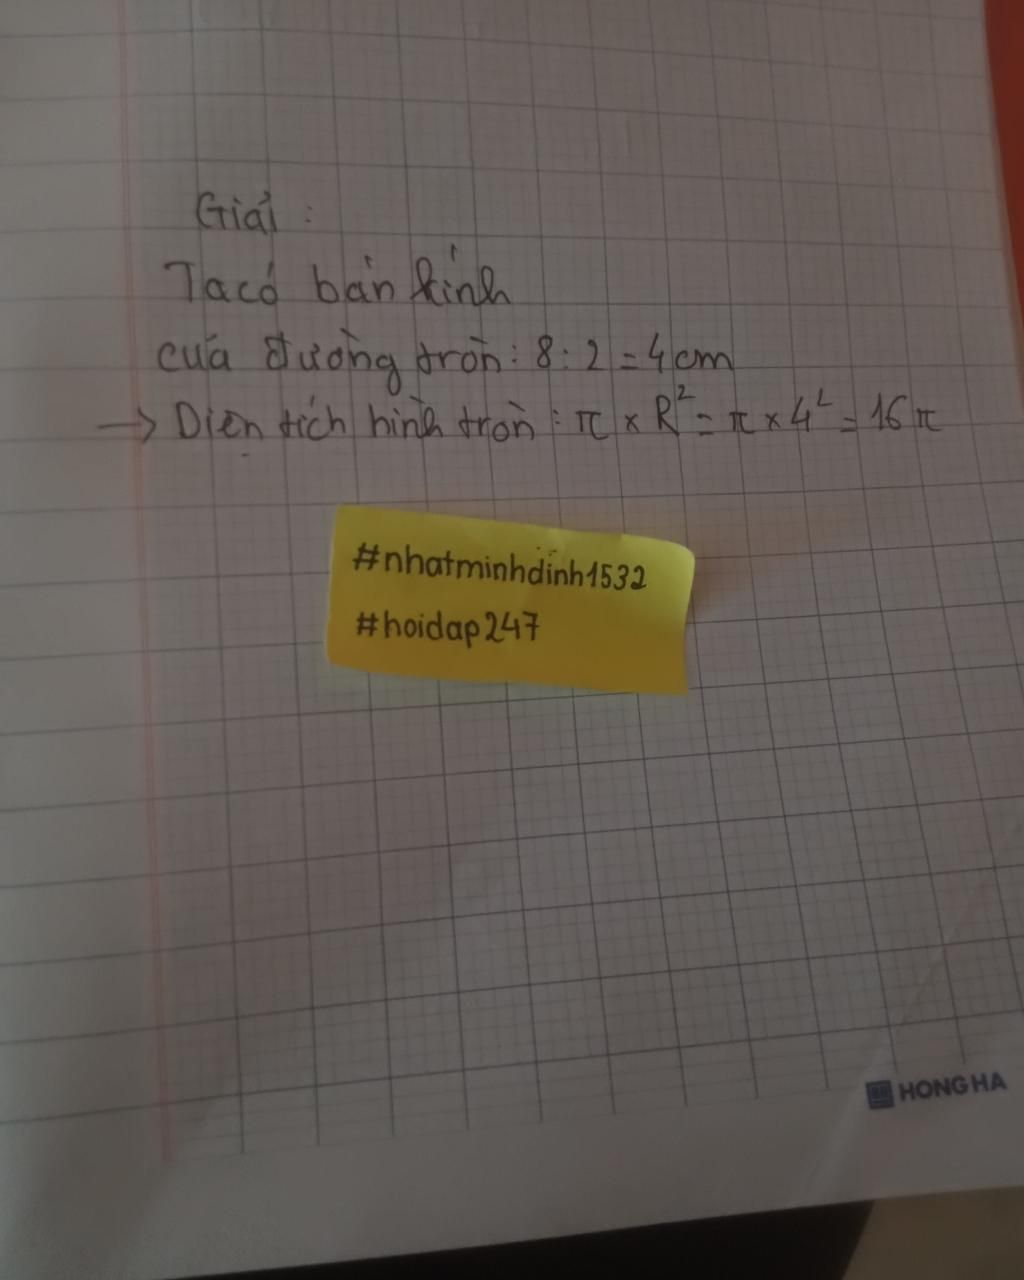 Giải :
Ta có bán kính
của đường tròn : 8 : 2 = 4 cm
→ Diện tích hình tròn : π × R² = π × 4² = 16 π
#nhatminhdinh1532
#hoidap247
HONG HA